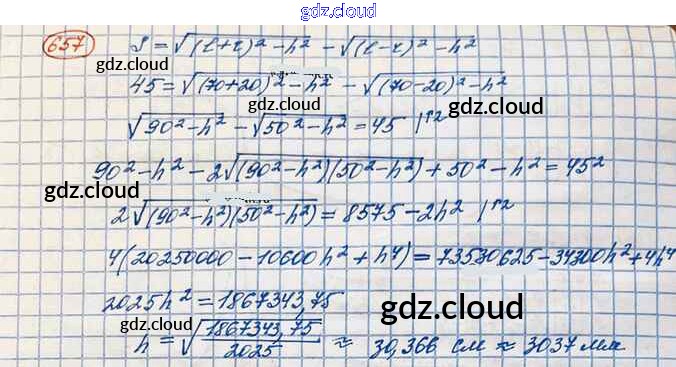 gdz.cloud
657 S = √(l+r)² - h² - √(l-r)² - h²
gdz.cloud
45 = √(70+20)² - h² - √(70-20)² - h²
gdz.cloud
√90² - h² - √50² - h² = 45 |↑²
gdz.cloud
90² - h² - 2√(90² - h²)(50² - h²) + 50² - h² = 45²
gdz.cloud
2√(90² - h²)(50² - h²) = 8575 - 2h² |↑²
gdz.cloud
4(20250000 - 10600h² + h⁴) = 73530625 - 34300h² + 4h⁴
2025h² = 1867343,75
gdz.cloud
gdz.cloud
h = √1867343,75/2025 ≈ 30,366 см ≈ 3037 мм
gdz.cloud